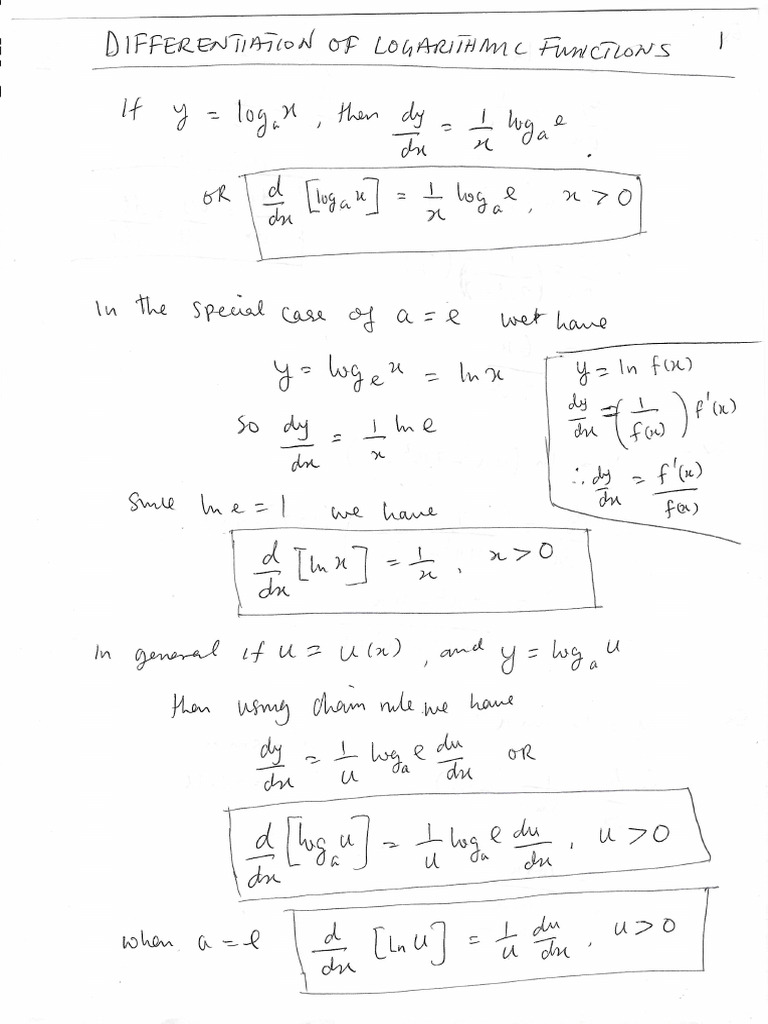 DIFFERENTIATION OF LOGARITHMIC FUNCTIONS 1
If y = logₐx, then dy/dx = 1/x logₐe.
OR d/dx [logₐx] = 1/x logₐe, x > 0
In the special case of a = e we have
y = logₑx = ln x
so dy/dx = 1/x ln e
Since ln e = 1 we have
d/dx [ln x] = 1/x, x > 0
y = ln f(x)
dy/dx = (1/f(x)) f'(x)
∴ dy/dx = f'(x)/f(x)
In general if u = u(x), and y = logₐu
then using chain rule we have
dy/dx = 1/u logₐe du/dx OR
d/dx [logₐu] = 1/u logₐe du/dx, u > 0
when a = e d/dx [ln u] = 1/u du/dx, u > 0